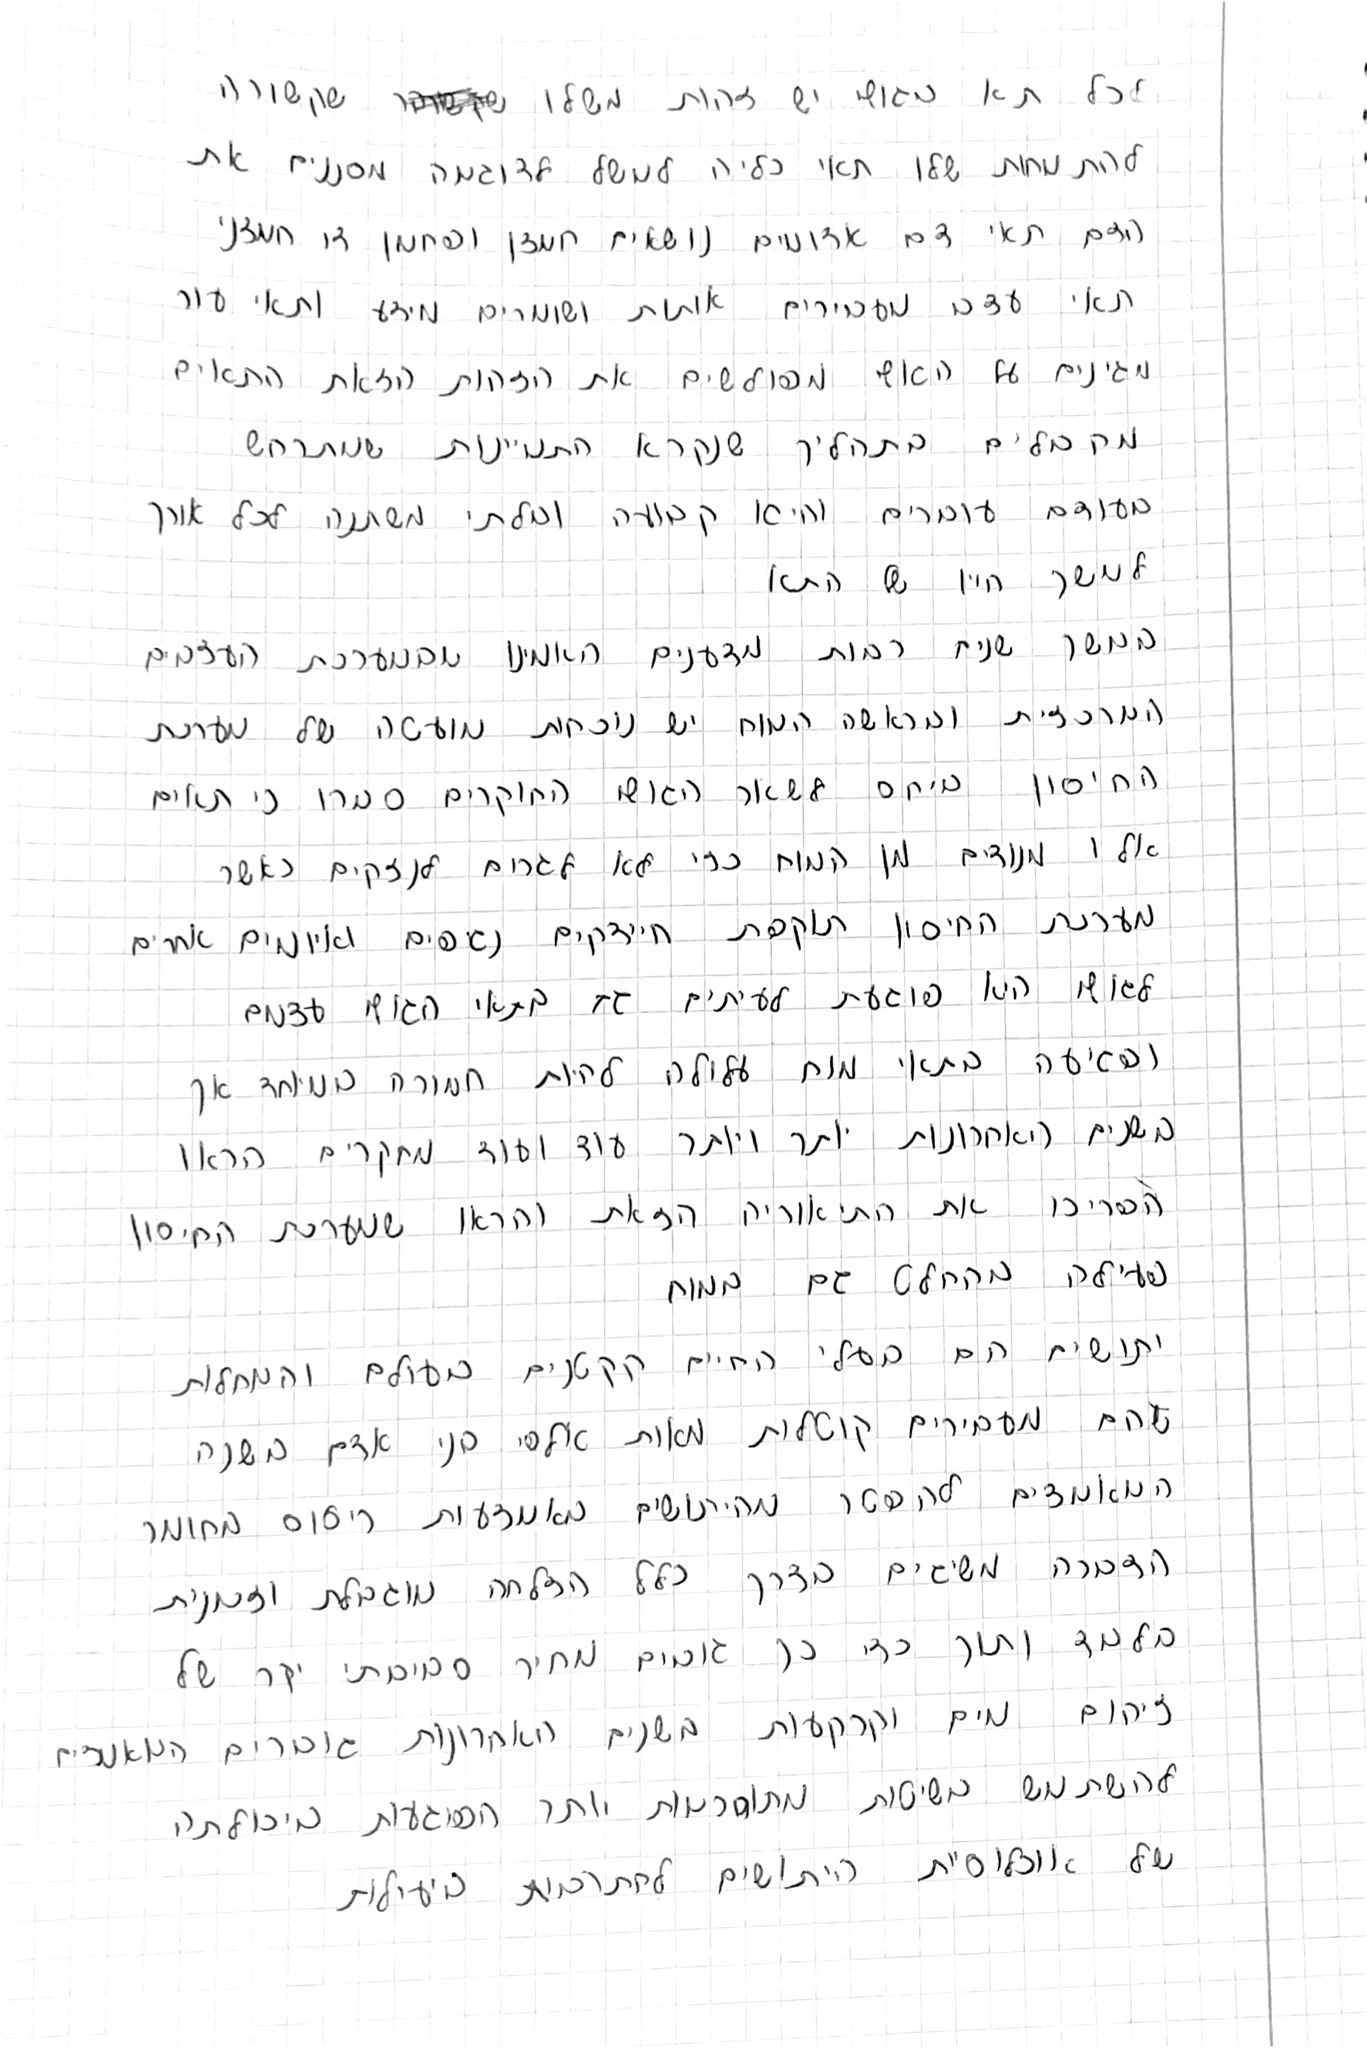 לכל תא בגוף יש זהות משלו שקשורה
להתמחות שלו תאי כליה למשל לדוגמה מסננים את
הדם תאי דם אדומים נושאים חמצן ופחמן דו חמצני
תאי עצב מעבירים אותות ושומרים מידע ותאי עור
מגינים על הגוף מפולשים את הזהות הזאת התאים
מקבלים בתהליך שנקרא התמיינות שמתרחש
בעודם עוברים והיא קבועה ובלתי משתנה לכל אורך
למשך חייו של התא
במשך שנים רבות מדענים האמינו שבמערכת העצבים
המרכזית ובראשה המוח יש נוכחות מועטה של מערכת
החיסון ביחס לשאר הגוף החוקרים סברו כי תאים
אלו מנודים מן המוח כדי לא לגרום לנזקים כאשר
מערכת החיסון תוקפת חיידקים נגיפים ואיומים אחרים
לגוף היא פוגעת לעיתים גם בתאי הגוף עצמם
ופגיעה בתאי מוח עלולה להיות חמורה במיוחד אך
בשנים האחרונות יותר ויותר עוד ועוד מחקרים הראו
הפריכו את התיאוריה הזאת והראו שמערכת החיסון
פעילה בהחלט גם במוח
יתושים הם בעלי החיים הקטנים בעולם והמחלות
שהם מעבירים קוטלות מאות אלפי בני אדם בשנה
המאמצים להפטר מהיתושים באמצעות ריסוס בחומר
הדברה משיגים בדרך כלל הצלחה מוגבלת וזמנית
בלבד ותוך כדי כך גובים מחיר סביבתי יקר של
זיהום מים וקרקעות בשנים האחרונות גוברים המאמצים
להשתמש בשיטות מתוחכמות יותר הפוגעות ביכולתה
של אוכלוסיית היתושים להתרבות ביעילות